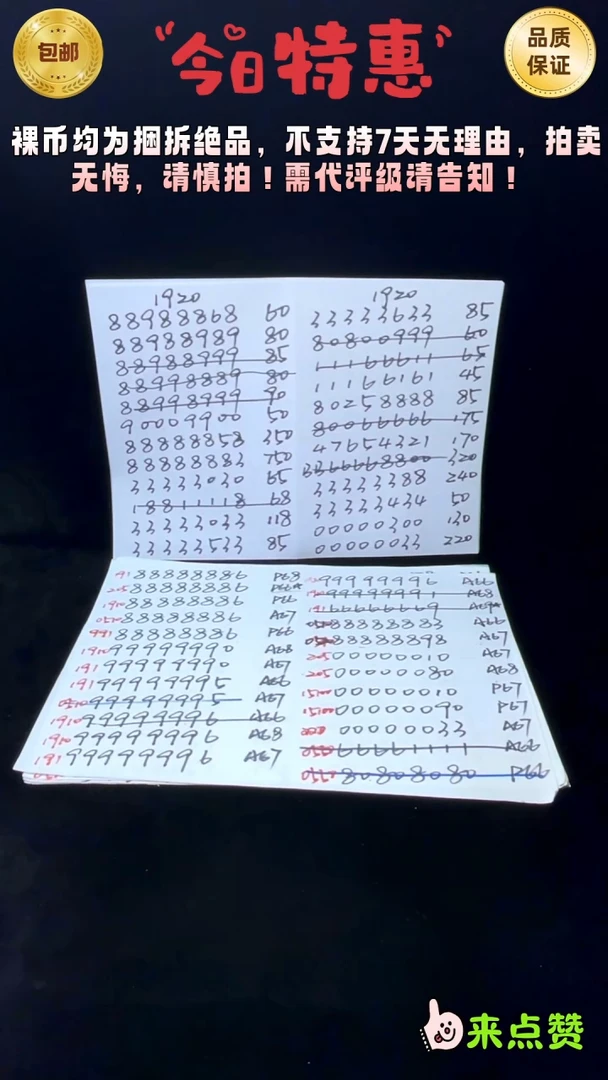 包邮
今日特惠
品质
保证
裸币均为捆拆绝品，不支持7天无理由，拍卖
无悔，请慎拍！需代评级请告知！
1920
88988868 60
88988989 80
88988999 85
88998889 80
88998999 90
90009900 50
88888858 350
88888883 750
33333030 65
18811118 68
33333033 118
33333533 85
1920
33333633 85
80800999 60
11166611 65
11166161 45
80258888 85
80066666 175
47654321 170
320
33333388 240
33333434 50
00000300 130
00000033 220
191 88888886 P68
205 88888886
1910 88888886 P66
0510 88888886 A67
991 88888886 P66
1910 99999990 A68
191 99999990 A67
191 99999995 A66
0510 99999995 A67
1910 99999996 A66
1910 99999996 A68
191 99999996 A67
99999996 A66
99999991 A68
66666669
88888883 A66
88888898 A67
205 00000010 A67
205 00000080 A68
1510 00000010 P67
1510 00000090 P67
00000033 A67
66661111 A66
80808080 P66
来点赞